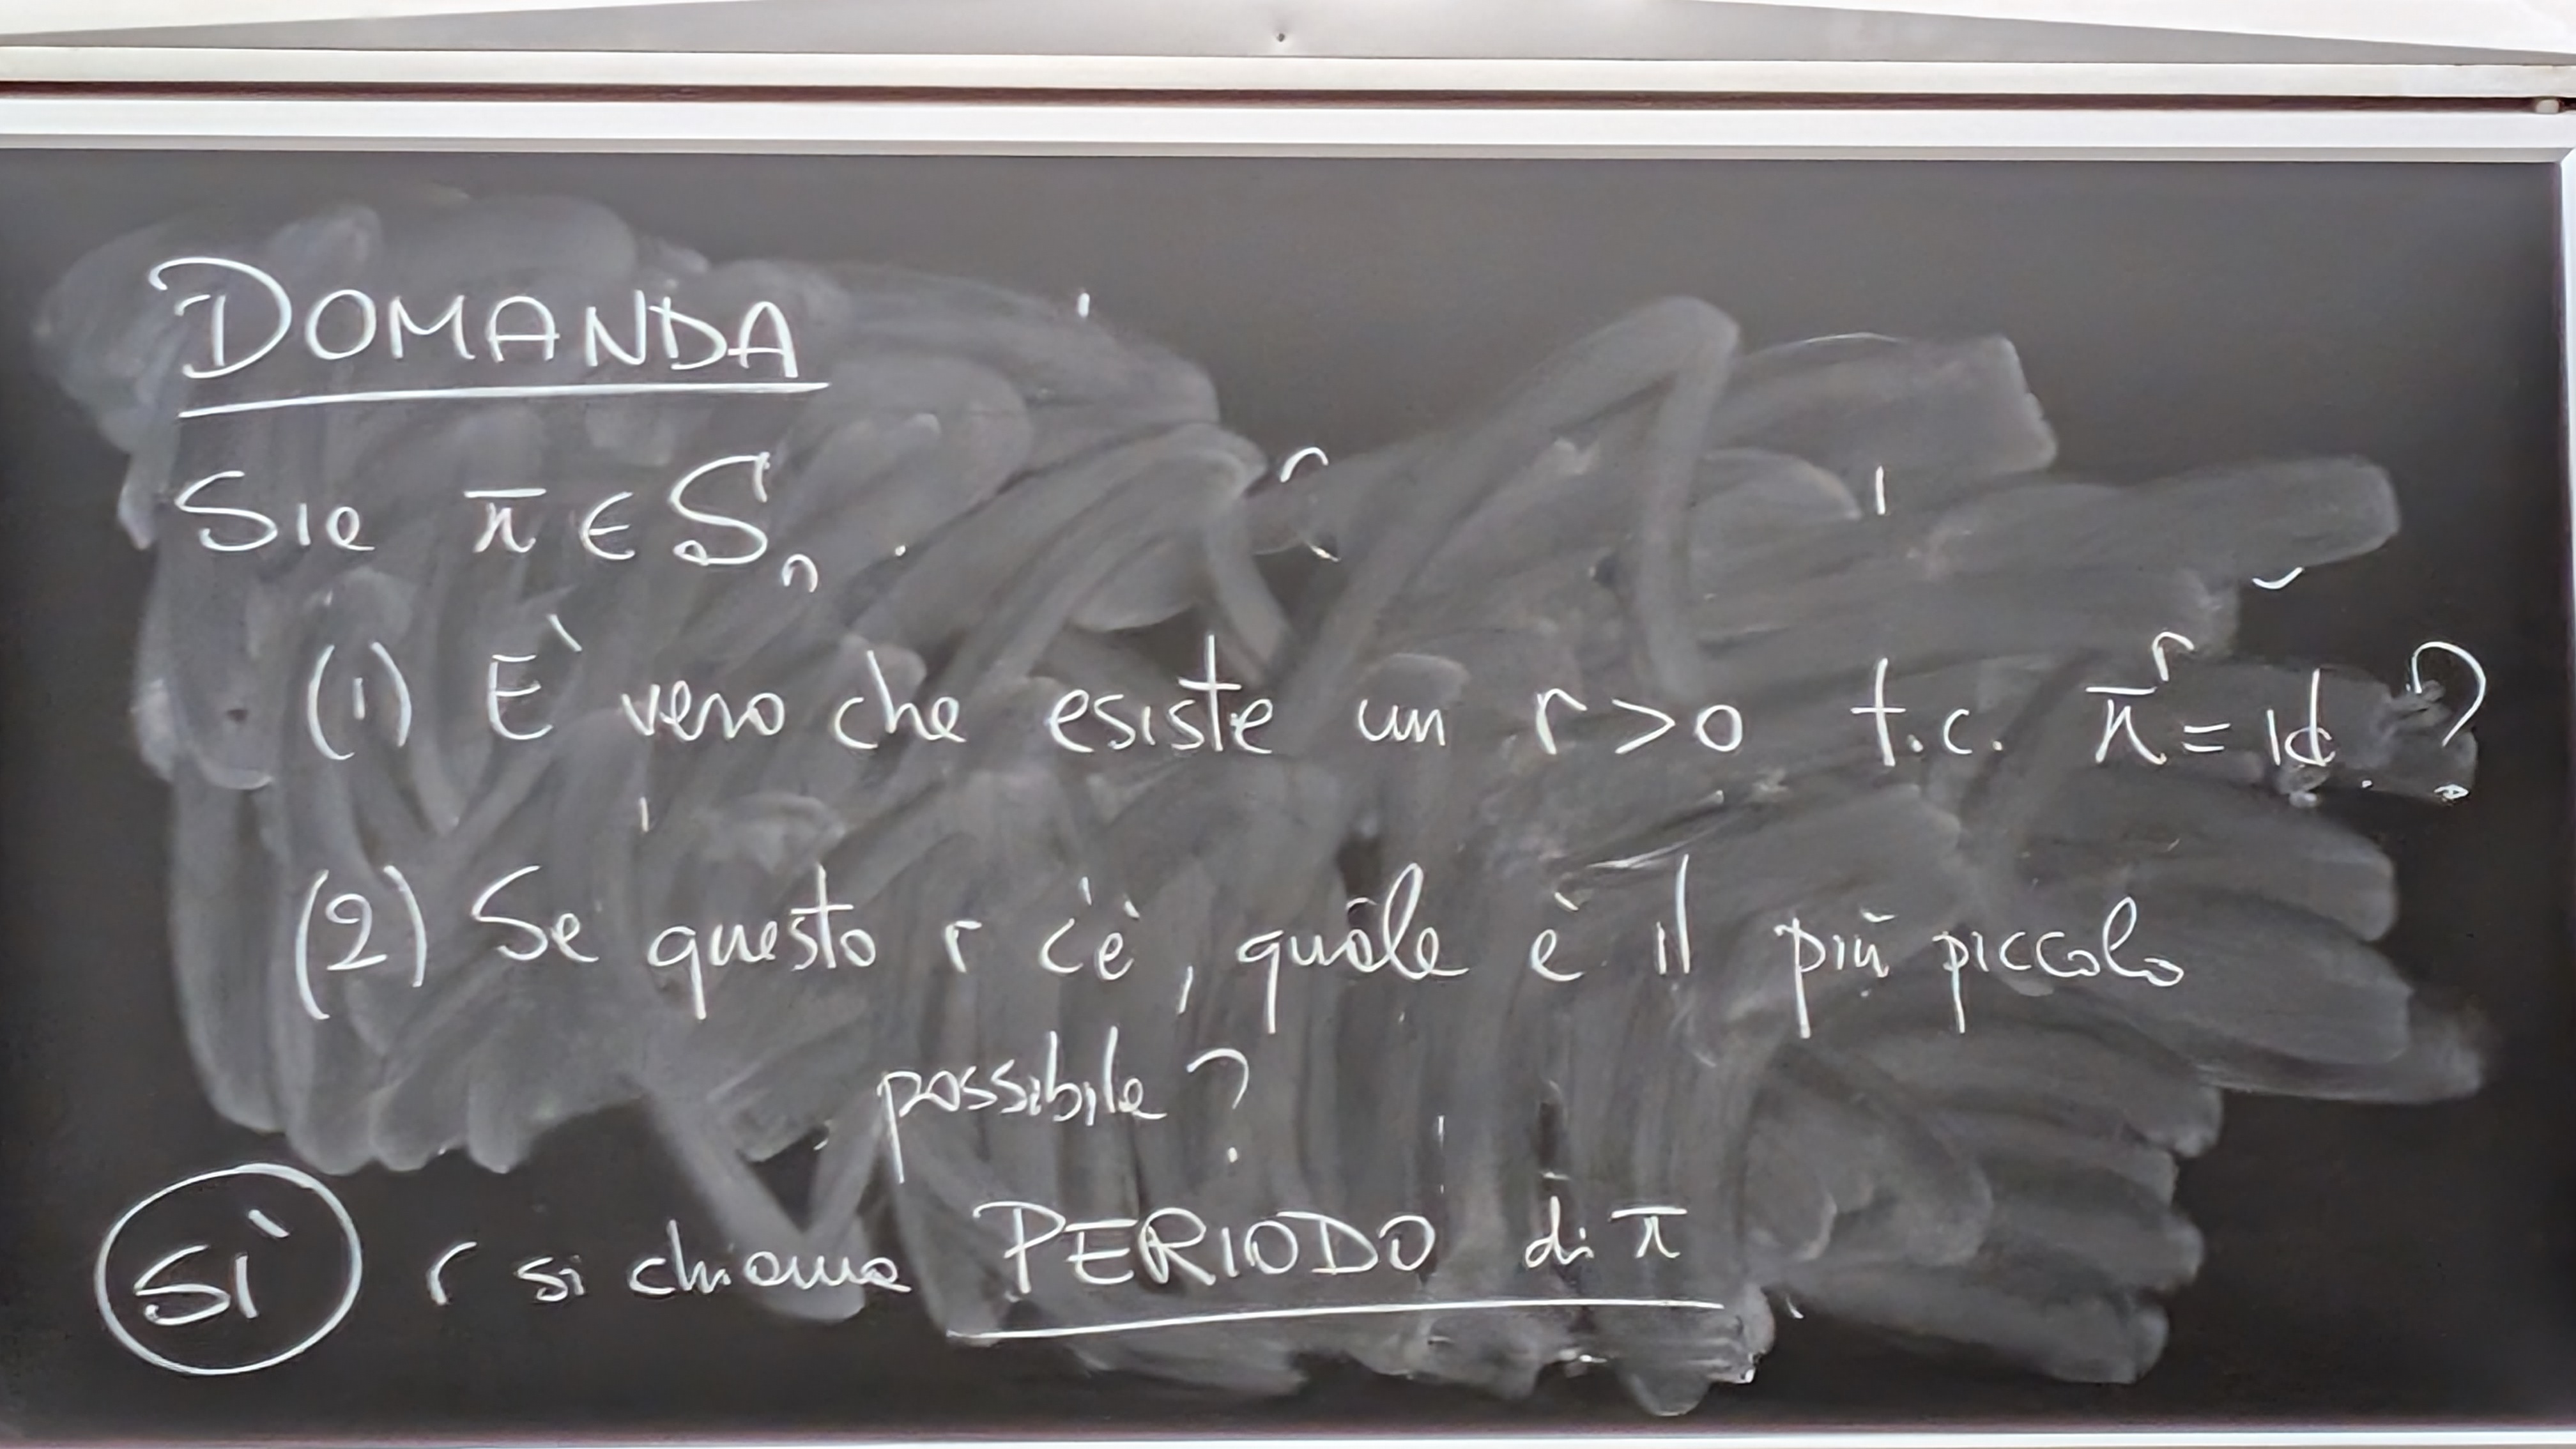 DOMANDA
Sia π ∈ Sₙ .
(1) È vero che esiste un r > 0 t.c. πʳ = id ?
(2) Se questo r c'è, quale è il più piccolo
possibile ?
SÌ r si chiama PERIODO di π